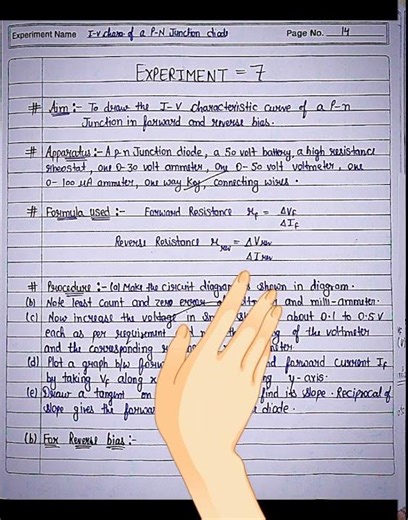 Experiment Name I-V chara of a P-N Junction diode Page No. 14
EXPERIMENT = 7
# Aim :- To draw the I-V characteristic curve of a P-n
Junction in forward and reverse bias.
# Apparatus :- A p-n Junction diode, a 50 volt battery, a high resistance
rheostat, one 0-30 volt ammeter, one 0-50 volt voltmeter, one
0-100 μA ammeter, one way key, connecting wires.
# Formula used :- Forward Resistance rf = ΔVf
ΔIf
Reverse Resistance rrev = ΔVrev
ΔIrev
# Procedure :- (a) Make the circuit diagram shown in diagram.
(b) Note least count and zero error of and milli-ammeter.
(c) Now increase the voltage in about 0.1 to 0.5V
each as per requirement of the voltmeter
and the corresponding
(d) Plot a graph b/w forward current If
by taking Vf along y-axis.
(e) Draw a tangent on find its slope. Reciprocal of
slope gives the diode.
(b) For Reverse bias :-